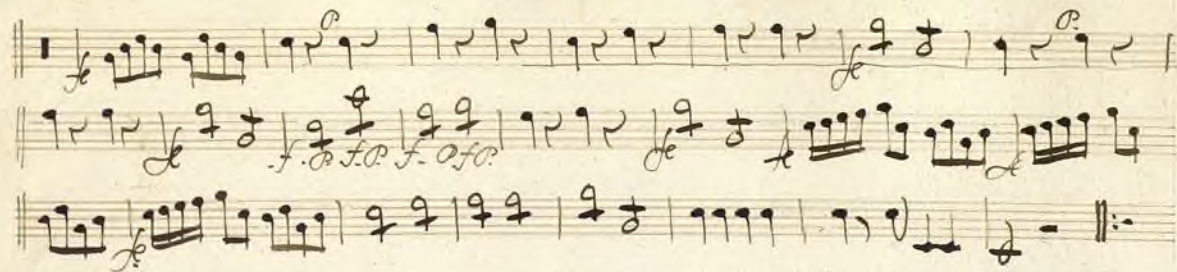 fe P. fe P.
fe f. P. f. P. f. P. f P. fe fe fe
fe